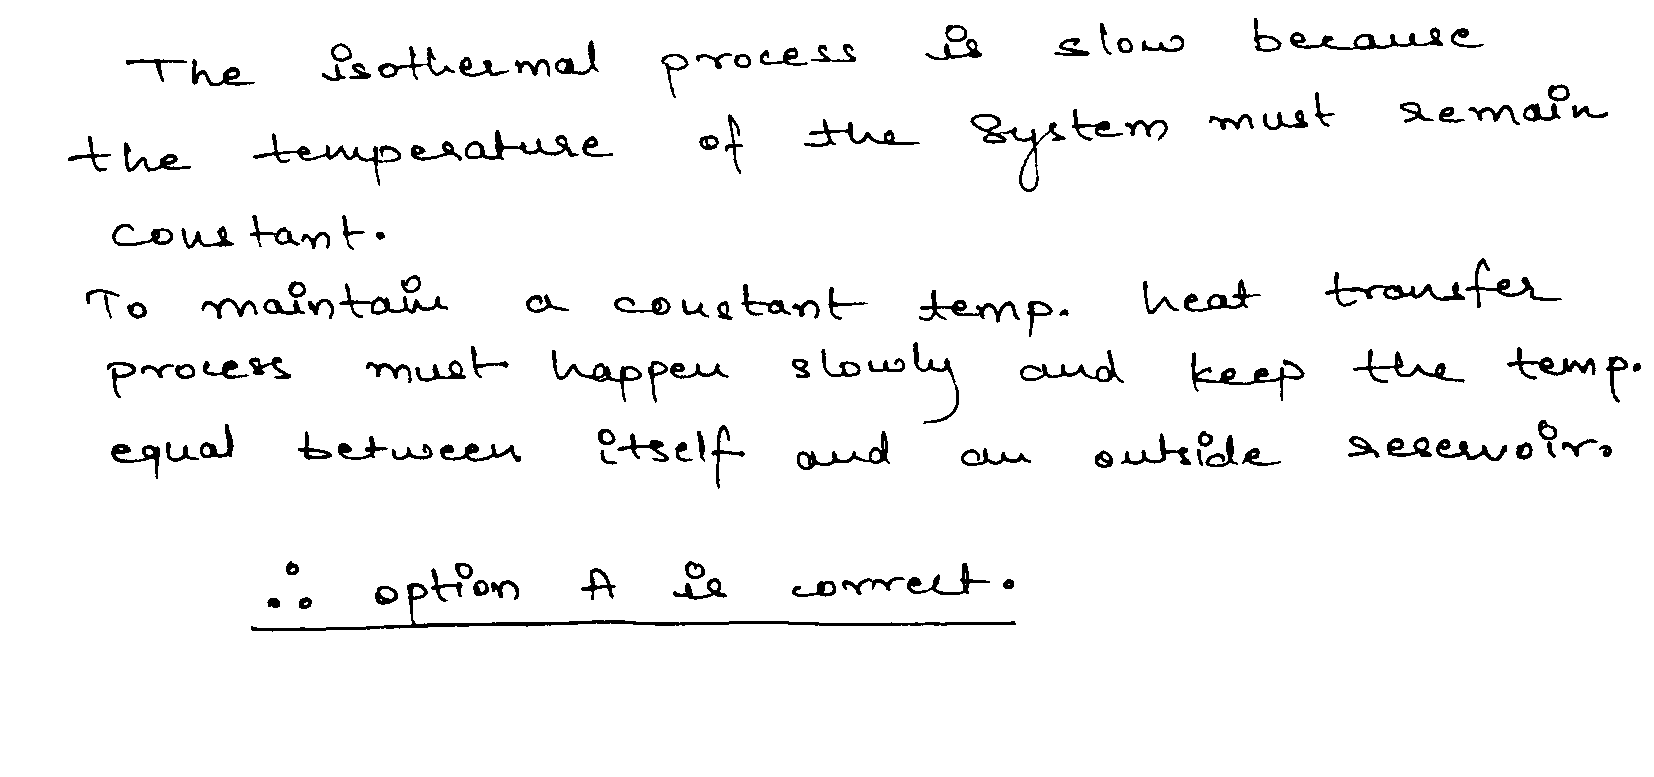 The isothermal process is slow because
the temperature of the system must remain
constant.
To maintain a constant temp. heat transfer
process must happen slowly and keep the temp.
equal between itself and an outside reservoir.
∴ option A is correct.